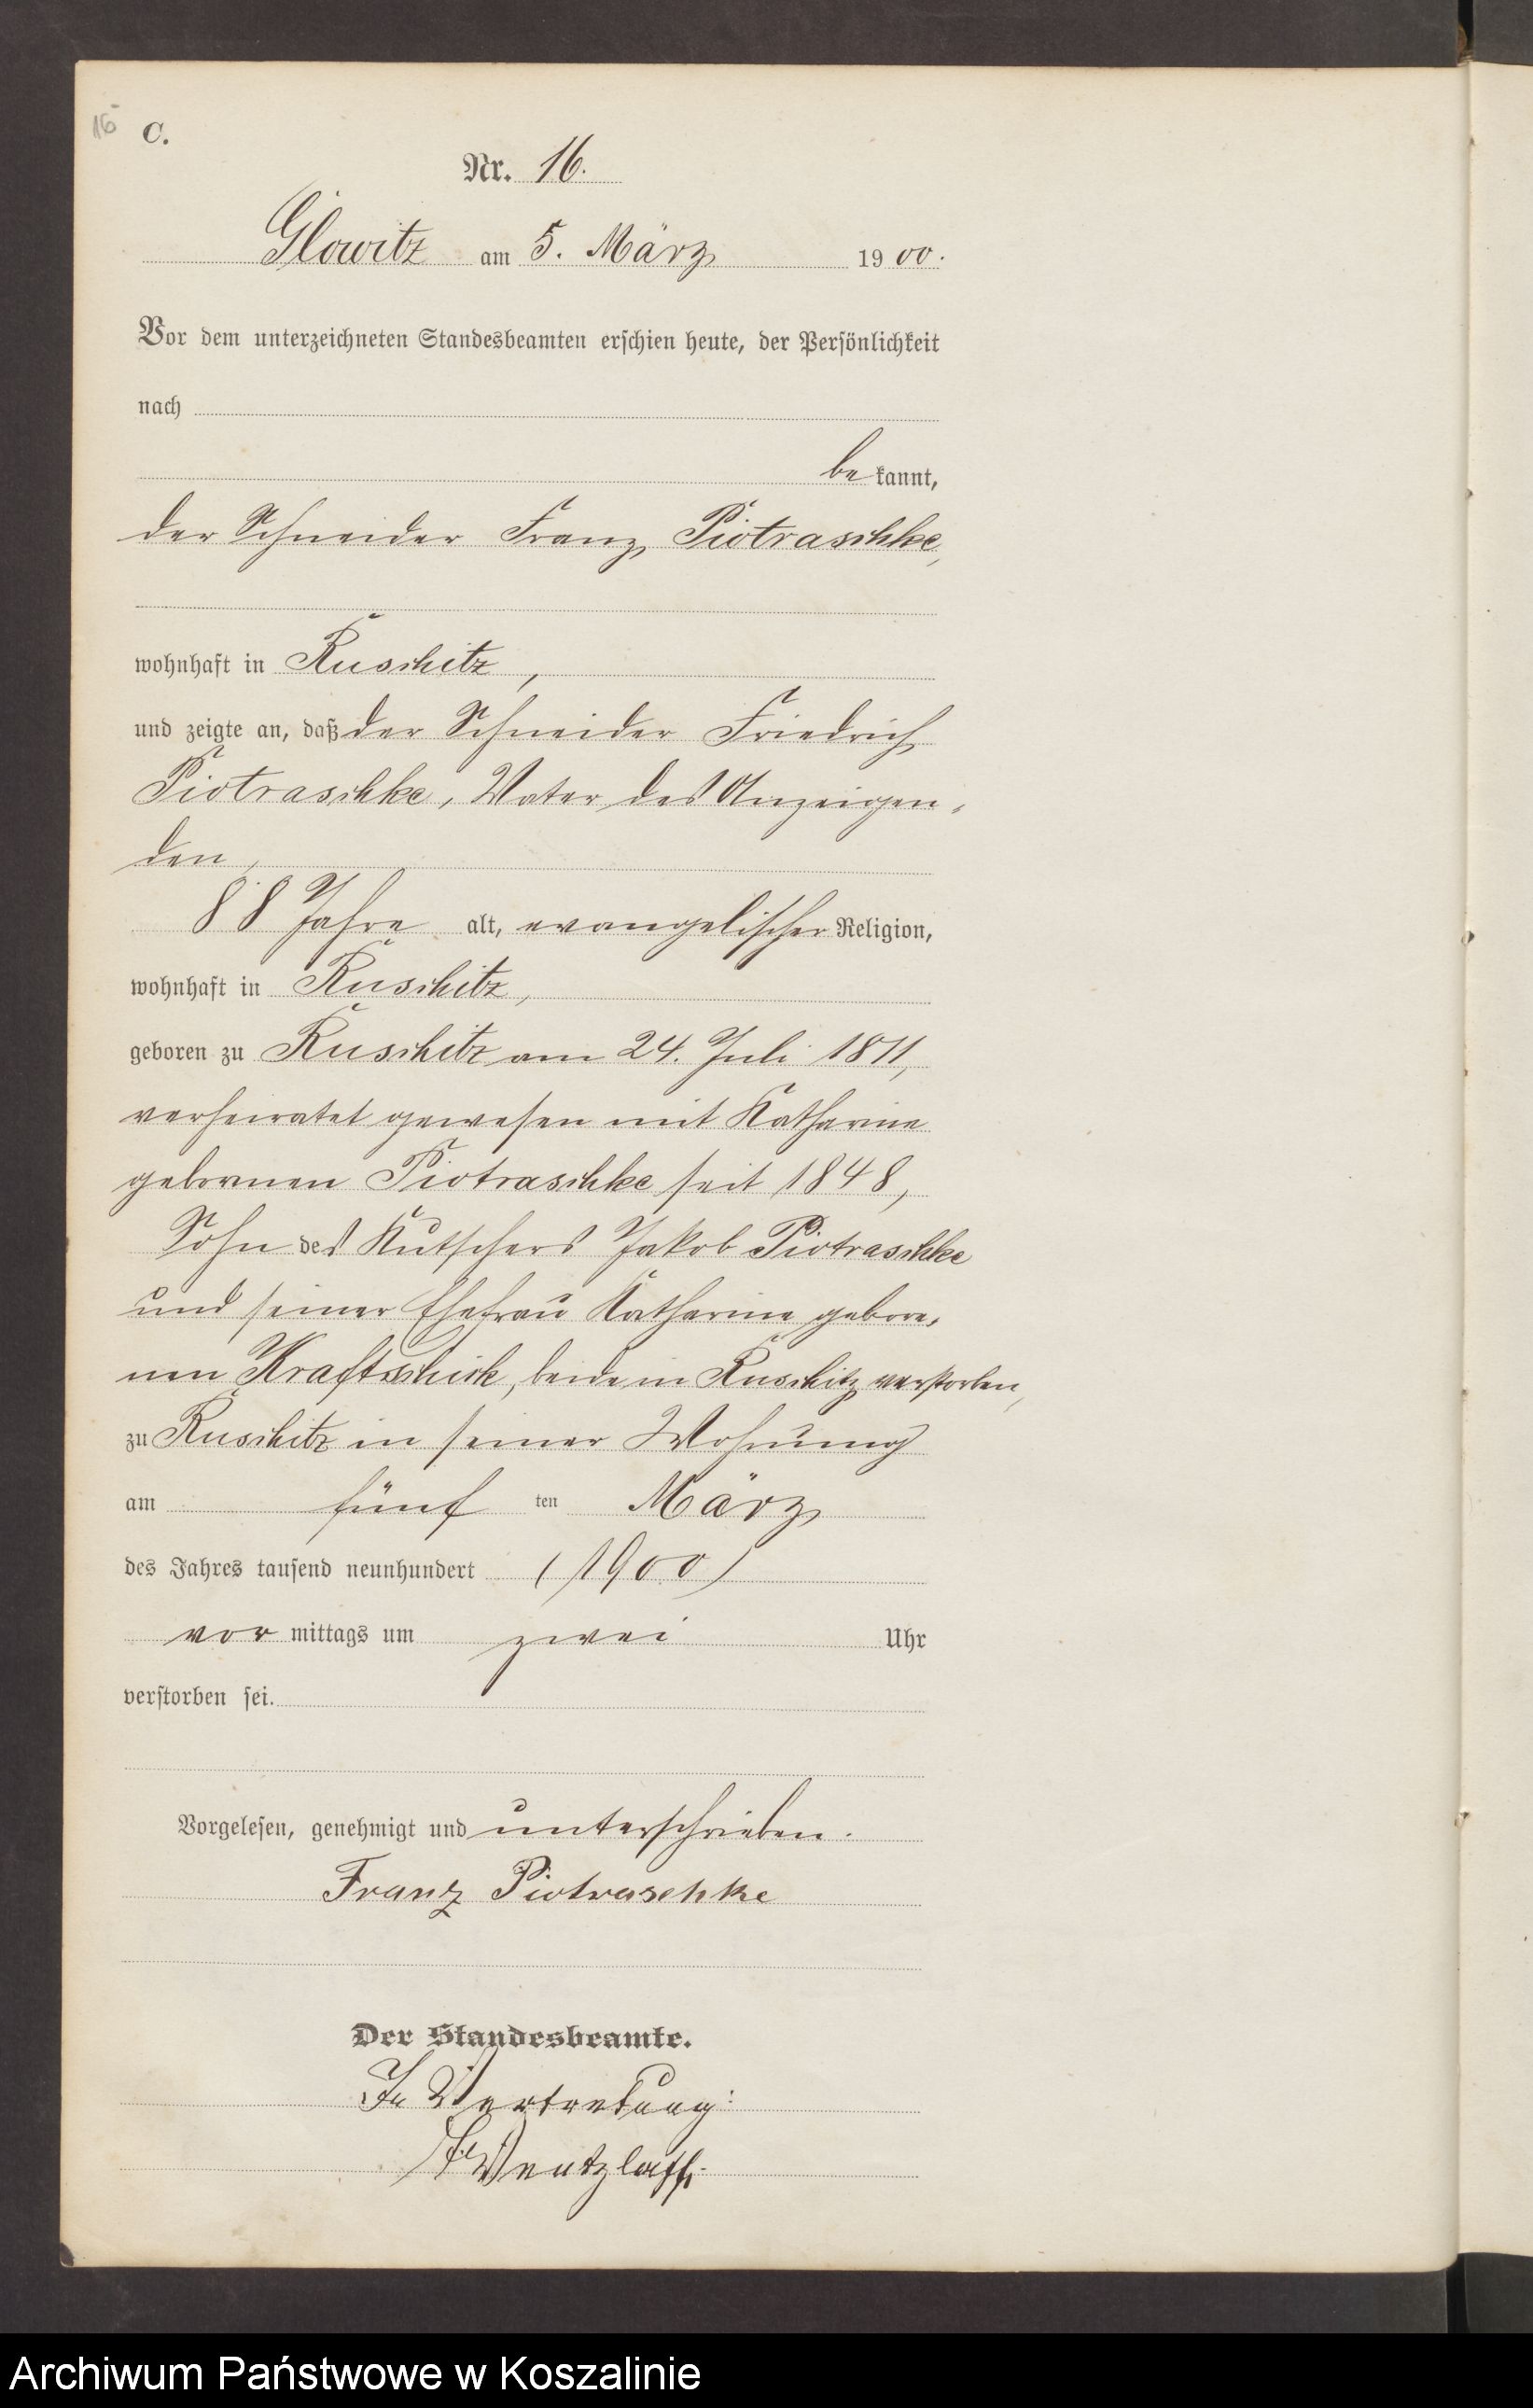 16
C.
Nr. 16.
Glowitz am 5. März 1900.
Vor dem unterzeichneten Standesbeamten erschien heute, der Persönlichkeit
nach
be kannt,
der Schneider Franz Piotraschke,
wohnhaft in Ruschitz,
und zeigte an, daß der Schneider Friedrich
Piotraschke, Vater des Anzeigen-
den,
88 Jahre alt, evangelischer Religion,
wohnhaft in Ruschitz,
geboren zu Ruschitz am 24. Juli 1811,
verheiratet gewesen mit Katharine
gebornen Piotraschke seit 1848,
Sohn des Kutschers Jakob Piotraschke
und seiner Ehefrau Katharine gebore-
nen Kraftschick, beide in Ruschitz verstorben,
zu Ruschitz in seiner Wohnung
am fünf ten März
des Jahres tausend neunhundert (1900)
vor mittags um zwei Uhr
verstorben sei.
Vorgelesen, genehmigt und unterschrieben.
Franz Piotraschke
Der Standesbeamte.
In Vertretung:
Wentzlaff.
Archiwum Państwowe w Koszalinie